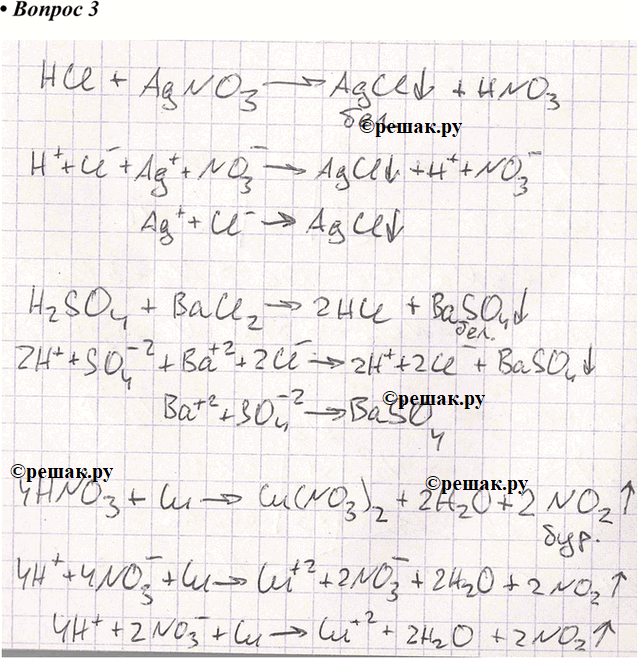 • Вопрос 3
HCl + AgNO₃ → AgCl↓ + HNO₃
бел.
©решак.ру
H⁺ + Cl⁻ + Ag⁺ + NO₃⁻ → AgCl↓ + H⁺ + NO₃⁻
Ag⁺ + Cl⁻ → AgCl↓
H₂SO₄ + BaCl₂ → 2HCl + BaSO₄↓
бел.
2H⁺ + SO₄⁻² + Ba⁺² + 2Cl⁻ → 2H⁺ + 2Cl⁻ + BaSO₄↓
©решак.ру
Ba⁺² + SO₄⁻² → BaSO₄
©решак.ру
©решак.ру
4HNO₃ + Cu → Cu(NO₃)₂ + 2H₂O + 2NO₂↑
бур.
4H⁺ + 4NO₃⁻ + Cu → Cu⁺² + 2NO₃⁻ + 2H₂O + 2NO₂↑
4H⁺ + 2NO₃⁻ + Cu → Cu⁺² + 2H₂O + 2NO₂↑